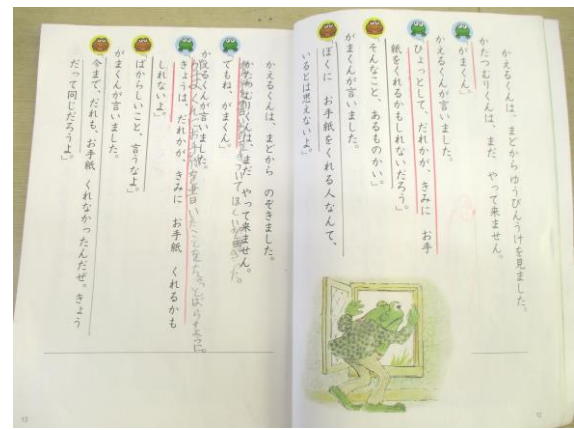 かえるくんは、まどから ゆうびんうけを見ました。
かたつむりくんは、まだ やって来ません。
「がまくん。」
かえるくんが言いました。
「ひょっとして、だれかが、きみに お手
紙をくれるかもしれないだろう。」
「そんなこと、あるものかい。」
がまくんが言いました。
「ぼくに お手紙をくれる人なんて、
いるとは思えないよ。」
12
かえるくんは、まどから のぞきました。
かたつむりくんは、まだ やって来ません。
「でもね、がまくん。」
かえるくんが言いました。
「きょうは、だれかが、きみに お手紙 くれるかも
しれないよ。」
「ばからしいこと、言うなよ。」
がまくんが言いました。
「今まで、だれも、お手紙 くれなかったんだぜ。きょう
だって同じだろうよ。」
13